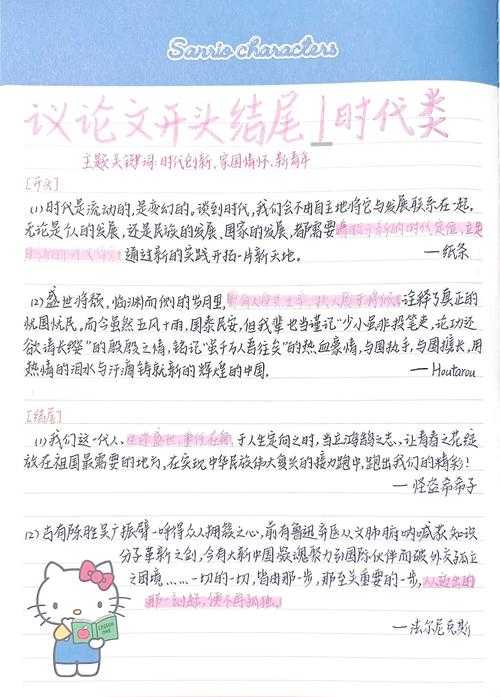 Sanrio characters
议论文开头结尾|时代类
主题关键词:时代创新、家国情怀、新青年
[开头]
(1)时代是流动的,是变幻的。谈到时代,我们会不由自主地将它与发展联系在一起。
无论是个人的发展、还是民族的发展、国家的发展,都需要
通过新的实践开拓一片新天地。 —纸条
(2)盛世将倾,临渊而侧的岁月里, 诠释了真正的
忧国忧民。而今虽然五风十雨,国泰民安,但我辈也当谨记“少小虽非投笔吏,论功还
欲请长缨”的殷殷之情,铭记“虽千万人吾往矣”的热血豪情,与国执手,与国擅长,用
热情的泪水与汗海铸就新的辉煌的中国。 —Houtarou
[结尾]
(1)我们这一代人、生逢盛世,重任在肩,于人生定向之时,当立鸿鹄之志、让青春之花绽
放在祖国最需要的地方,在实现中华民族伟大复兴的接力跑中,跑出我们的精彩!
—怪盗希希子
(2)古有陈胜吴广振臂一呼得众人拥簇之心,前有鲁迅弃医从文肺腑呐喊获知识
分子革新之创,今有大新中国 聚力动国际伙伴而破外交孤立
之困境……一切的一切,皆由那一步,那至关重要的一步,人迈出的
那一刻起,便不再孤独。
—法尔尼克斯